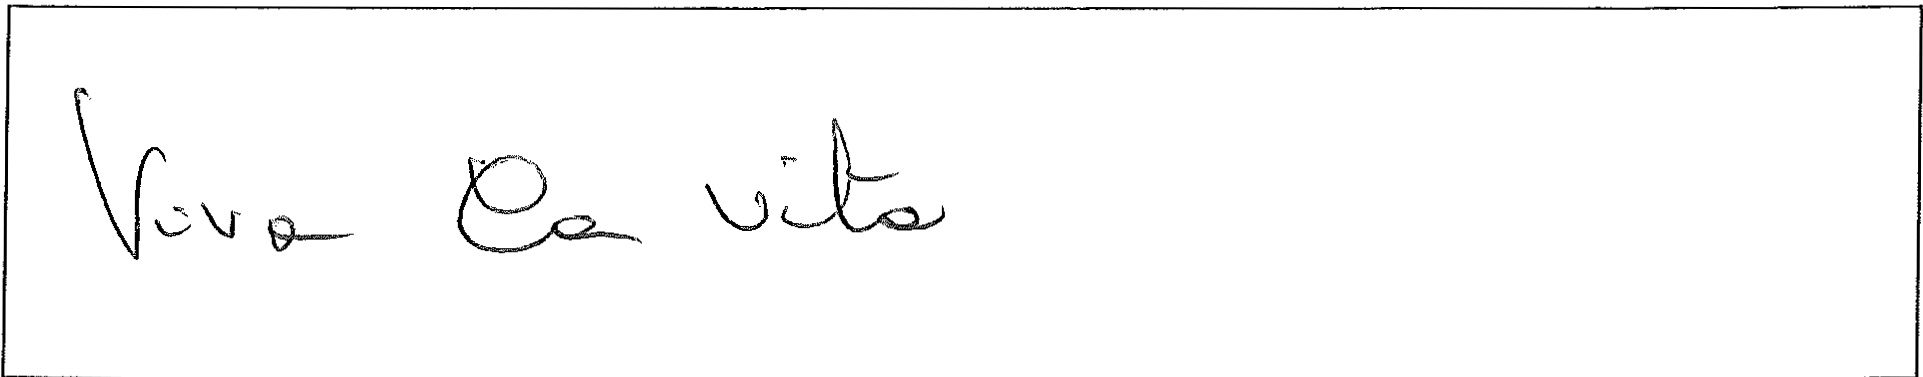 Viva la vita